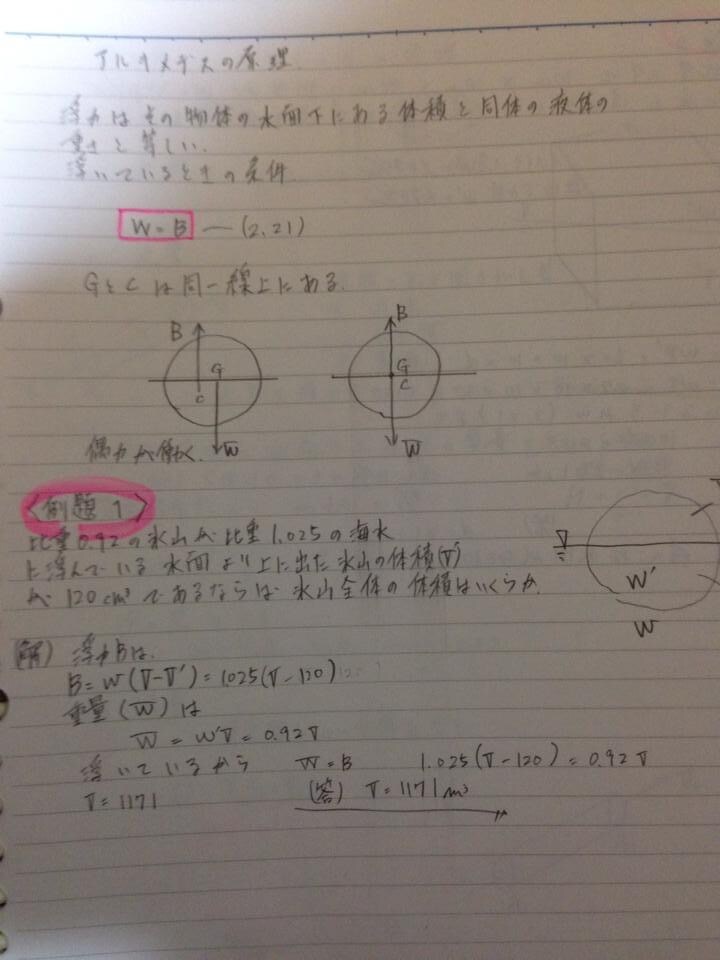 アルキメデスの原理
浮力はその物体の水面下にある体積と同体の液体の
重さと等しい.
浮いているときの条件
W = B — (2.21)
GとCは同一線上にある.
B
G
C
W
B
G
C
W
偶力が働く.
〈例題 1〉
比重0.92の氷山が比重1.025の海水
に浮んでいる 水面より上に出た氷山の体積(V')
が 120cm³ であるならば 氷山全体の体積はいくらか.
W'
W
(解) 浮力Bは.
B = W (V-V') = 1.025(V-120)
重量 (W) は
W = W'V = 0.92V
浮いているから W = B 1.025(V-120) = 0.92V
V = 1171 (答) V = 1171 m³